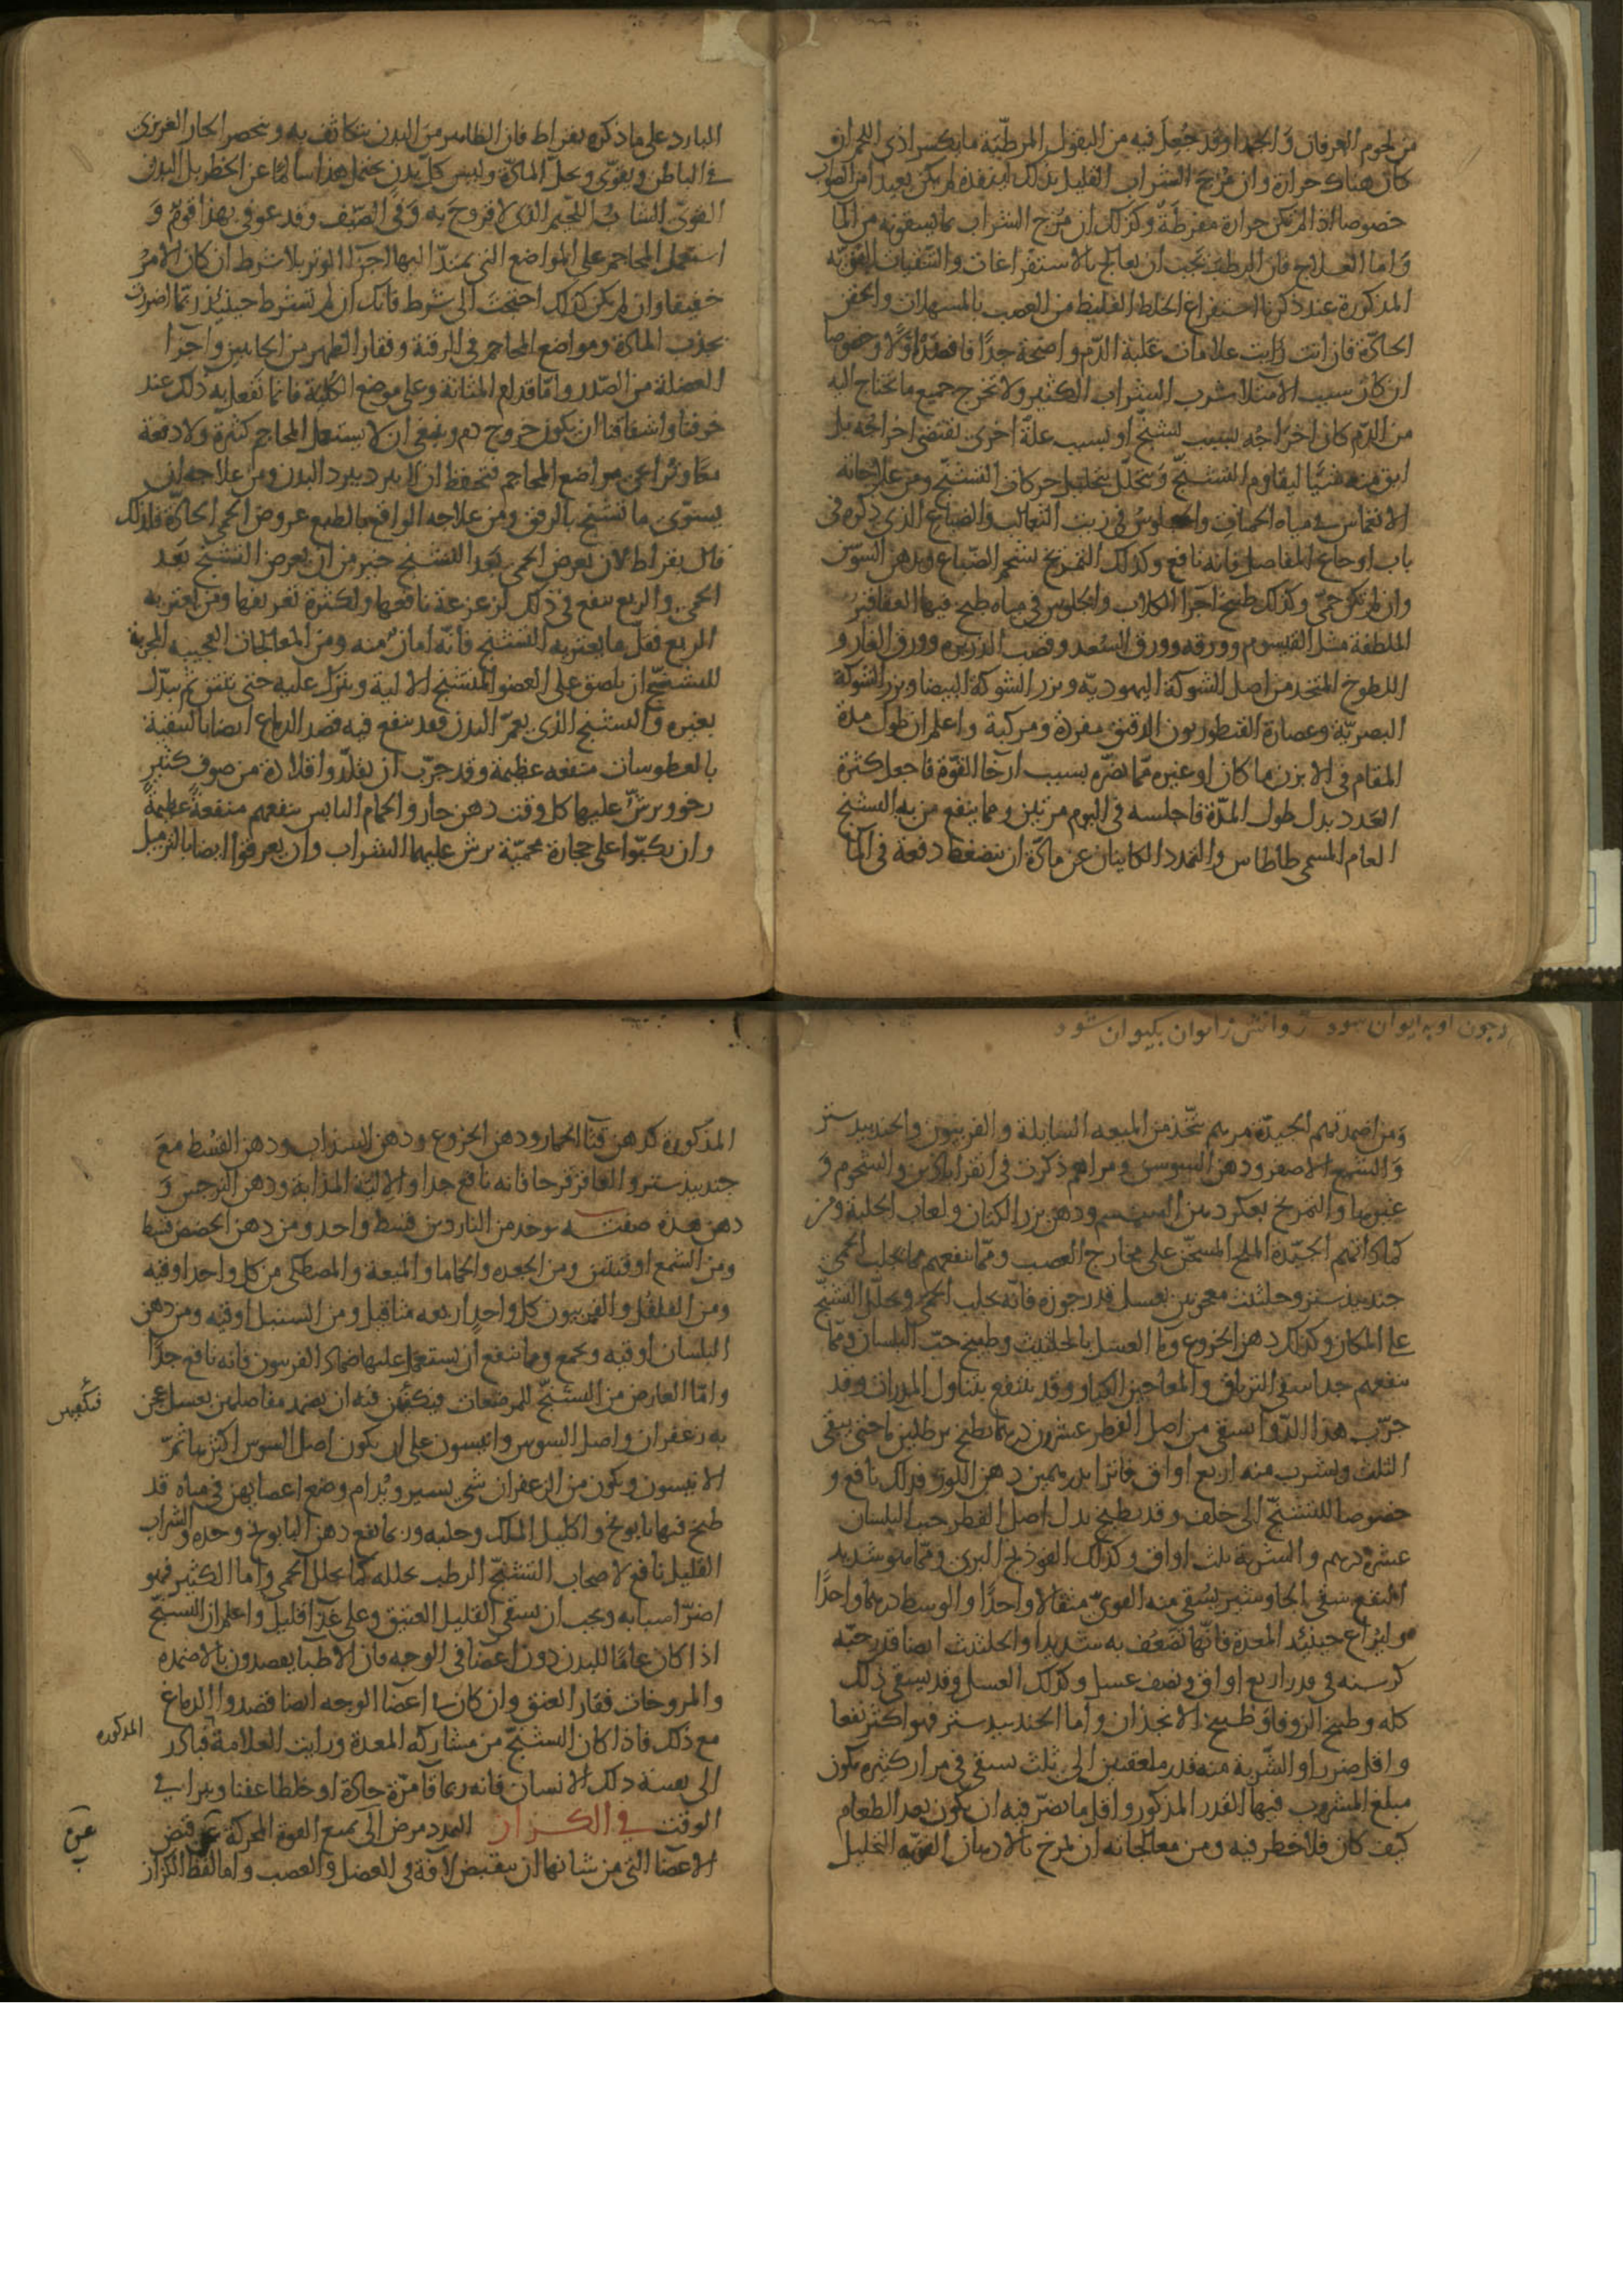 من لحوم الفرفان والجدا وقد جُعِلَ فيه من البقول المرطّبة ما يكسر اذى اللحم ان
كان هناك حرارة وان مزج الشراب القليل بذلك لينفذه لم يكن بعيدا من الصواب
خصوصا اذا لم تكن حرارة مفرطةٌ وكذلك ان مزج الشراب بما يسقونه من الما
وَاما العلاج فان الرطب يجب ان يعالج بالاستفراغات والتنقيات القويّة
المذكورة عند ذكرنا استفراغ الخلط الغليظ من العصب بالمسهلات والحقن
الحادّة فان انت رايت علامات غلبة الدم واضحة جدّا فافصد اولا وخصوصا
ان كان سبب الامتلا شرب الشراب الكثير ولا تخرج جميع ما تحتاج اليه
من الدّم كان اخراجُه بسبب تشنّج او بسبب علة اخرى تقتضى اخراجُه بل
ابق منه شيًا ليقاوم التشنّج وَيتحلّل بتحليل حركات التشنّج ومن علاجاته
الانغماس في مياه الحمات والجلوس في زيت الثعالب والضباع الذى ذكره في
باب اوجاع المفاصل فانه نافع وكذلك التمريخ بشحم الضباع وبدهن السوسن
وان لم تكن حمىّ وكذلك طبيخ اجرا الكلاب والجلوس في مياه طبخ فيها العقاقير
الملطفة مثل القيسوم وورقه وورق السّعد وقصب الذريره وورق الغار و
اللطوخ المتخذ من اصل الشوكة اليهوديّه وبزر الشوكة البيضا وبزر الشوكة
البصريّة وعصارة القنطوريون الدقيق مفردة ومركبة واعلم ان طول مدة
المقام في الابزن ما كان او غيره ممّا يضرّه بسبب ارخا القوّة فاجعل كثرة
العدد بدل طول المدّة فاجلسه في اليوم مرتين ومما ينفع من به التشنج
العام المسمى طاطاس والتمدد الكاينان عن مادّة ان ينضغط دفعة في الما
البارد على ما ذكره بقراط فان الظاهر من البدن يتكاثف به وينحصر الحار الغريزى
في الباطن ويقوّى ويحلّ المادّة وليس كل بدنٍ يحتمل هذا سالمًا عن الخطر بل البدن
القوىّ الشابُّ اللحيم الذى لا قروحَ به وَفي الصيف وقد عوفي بهذا قومٌ وَ
استعمل المحاجم على المواضع التي يمتدّ اليها اجزا الوتر بلا شرط ان كان الامرُ
خفيفا وان لم يكن كذلك احتجتَ الى شرط فانك ان لم تشرط حينئذ ربّما اضررت
بجذب المادة ومواضع المحاجم في الرقبة وفقار الظهر من الجانبين واجزا
العضلة من الصّدر وامّا قدام المثانة وعلى موضع الكلية فانما تفعل به ذلك عند
خوفنا واشفاقنا ان يكون خروج دم وينبغى ان لا يستعمل المحاجم كثيرة ولا دفعة
معًا وتراعى مواضع المحاجم فتحفظ ان لا يبرد ببرد البدن ومن علاجه ان
يسوّى ما تشنّج بالرفق ومن علاجه الواقع بالطبع عروض الحمى الحادّة فلذلك
قال بقراط لان يعرض الحمى بَعد التشنج خير من ان يعرض التشنّج بَعد
الحمى والربع ينفع في ذلك لزعزعة نافعها ولكثرة تعريقها ومن يعتريه
الربع فقلّ ما يعتريه التشنج فانّه امان منه ومن المعالجات العجيبه المجربة
للتشنّج ان يلصق على العضو المتشنج الالية ويترك عليه حتى ينتن ثم يبدّل
بغيره والتشنج الذى يعمّ البدن فقد ينفع فيه قصد الدماغ ايضا بالتنقية
بالعطوسات منفعه عظيمة وقد جرّب ان يقلّدوا قلادة من صوف كثير
رخوو يرشّ عليها كل وقت دهن حار والحمام اليابس ينفعهم منفعةً عظيمةً
وان يكبّوا على حجارة محميّة يرش عليها الشراب وان يعرقوا ايضا بالتزميل
چون او به ايوان شود روانش ز ايوان بكيوان شود
وَمن اضمدتهم الجيدّة مرهم يتّخذ من الميعه السايلة والفربيون والجندبيدستر
وَالشمع الاصفر ودهن السوسن ومراهم ذكرت في انقراباذين والشحوم وَ
غيرها والتمريخ بعكر دهن السمسم ودهن بزر الكتان ولعاب الحلبة ومن
كماداتهم الجيّدة الملح المسخّن على مخارج العصب وممّا ينفعهم مما يجلب الحمى
جندبيدستر وحلتيت معجونين بعسل قدر جوزة فانّه يجلب الحمّى ويحلّل التشنّج
على المكان وكذلك دهن الخروع وما العسل بالحلتيث وطبيخ حبّ البلسان وممّا
ينفعهم جدا سقى الترياق والمعاجين الكبار وقد ينتفع بتناول المدرات وقد
جرّب هذا الدّوا يسقى من اصل القطر عشرون درهما يطبخ برطلين ما حتى يبقى
الثلث ويشرب منه اربع اواق فاترا بدرهمين دهن اللوز فذلك نافع و
خصوصا للتشنّج الى خلف وقد يطبخ بدل اصل القطر حب البلسان
عشرة درهم والشربة ثلث اواق وكذلك الفوذنج البرى وممّا هو شديد
النفع سقى الجاوشير يُسقى منه القوىّ مثقالا واحدًا والوسط درهما واحدًا
وليُراع حينئذ المعدة فانّها تضعُف به شديدا والحلتيث ايضا قدر حبّه
كرسنه في قدر اربع اواق ونصف عسل وكذلك العسل وقد يسقى ذلك
كله وطبيخ الزوفا وَطبيخ الانجذان واما الجندبيدستر فهو اكثر نفعا
واقل ضررا والشّربة منه قدر ملعقتين الى ثلث يسقى في مرار كثيره يكون
مبلغ المشروب فيها القدر المذكور واقل ما يضرّ فيه ان يكون بعد الطعام
كيف كان فلا خطر فيه ومن معالجاته ان يمرخ بالادهان القويّه التحليل
المذكورة كدهن قثا الحمار ودهن الخروع ودهن السذاب ودهن القسْط معَ
جندبيدستر والعاقرقرحا فانه نافع جدا والالية المذابة ودهن النرجس وَ
دهن هذه صفته يوخذ من الناردين قسط واحد ومن دهن الحضض قسط
ومن الشمع اوقيتين ومن الجعده والحماما والميعة والمصطكى من كل واحد اوقيه
ومن الفلفل والفربيون كل واحدٍ اربعه مثاقيل ومن السنبل اوقيه ومن دهن
البلسان اوقيه ويجمع ومما ينتفع ان يستعمل عليها ضماد الفربيون فانه نافع جدّا
وامّا العارض من التشنّج للمرضعات فيكفيهن فيه ان يضمد مفاصلهن بعسل عجن
فيكفيهن
به زعفران واصل السوس وانيسون على ان يكون اصل السوس اكثرها ثم
الانيسون ويكون من الزعفران شى يسير ويُدام وضع اعصابهن في مياه قد
طبخ فيها بابونج واكليل الملك وحلبه وربما نفع دهن البابونج وحده والشراب
القليل نافع لاصحاب التشنّج الرطب يحلله كما يحلل الحمى واما الكثير فهو
اضرّ اسبابه ويجب ان يسقى القليل العتيق وعلى غدّا قليل واعلم ان التشنّج
اذا كان عامًا للبدن دون اعضا في الوجه فان الاطبا يقصدون بالاضمده
والمروخات فقار العنق وان كان في اعضا الوجه ايضا قصدوا الدماغ
مع ذلك فاذا كان التشنّج من مشاركة المعدة ورايت العلامة فبادر
المذكوره
الى تقيئة ذلك الانسان فانه ربما قا مرّة حادّة او خلطا عفنا ويبرا في
الوقت في الكزاز التمدد مرض الى يمنع القوة المحركة عن قبض
عن
الاعضا التى من شانها ان ينقبض لافة في العضل والعصب واما لفظ الكزاز